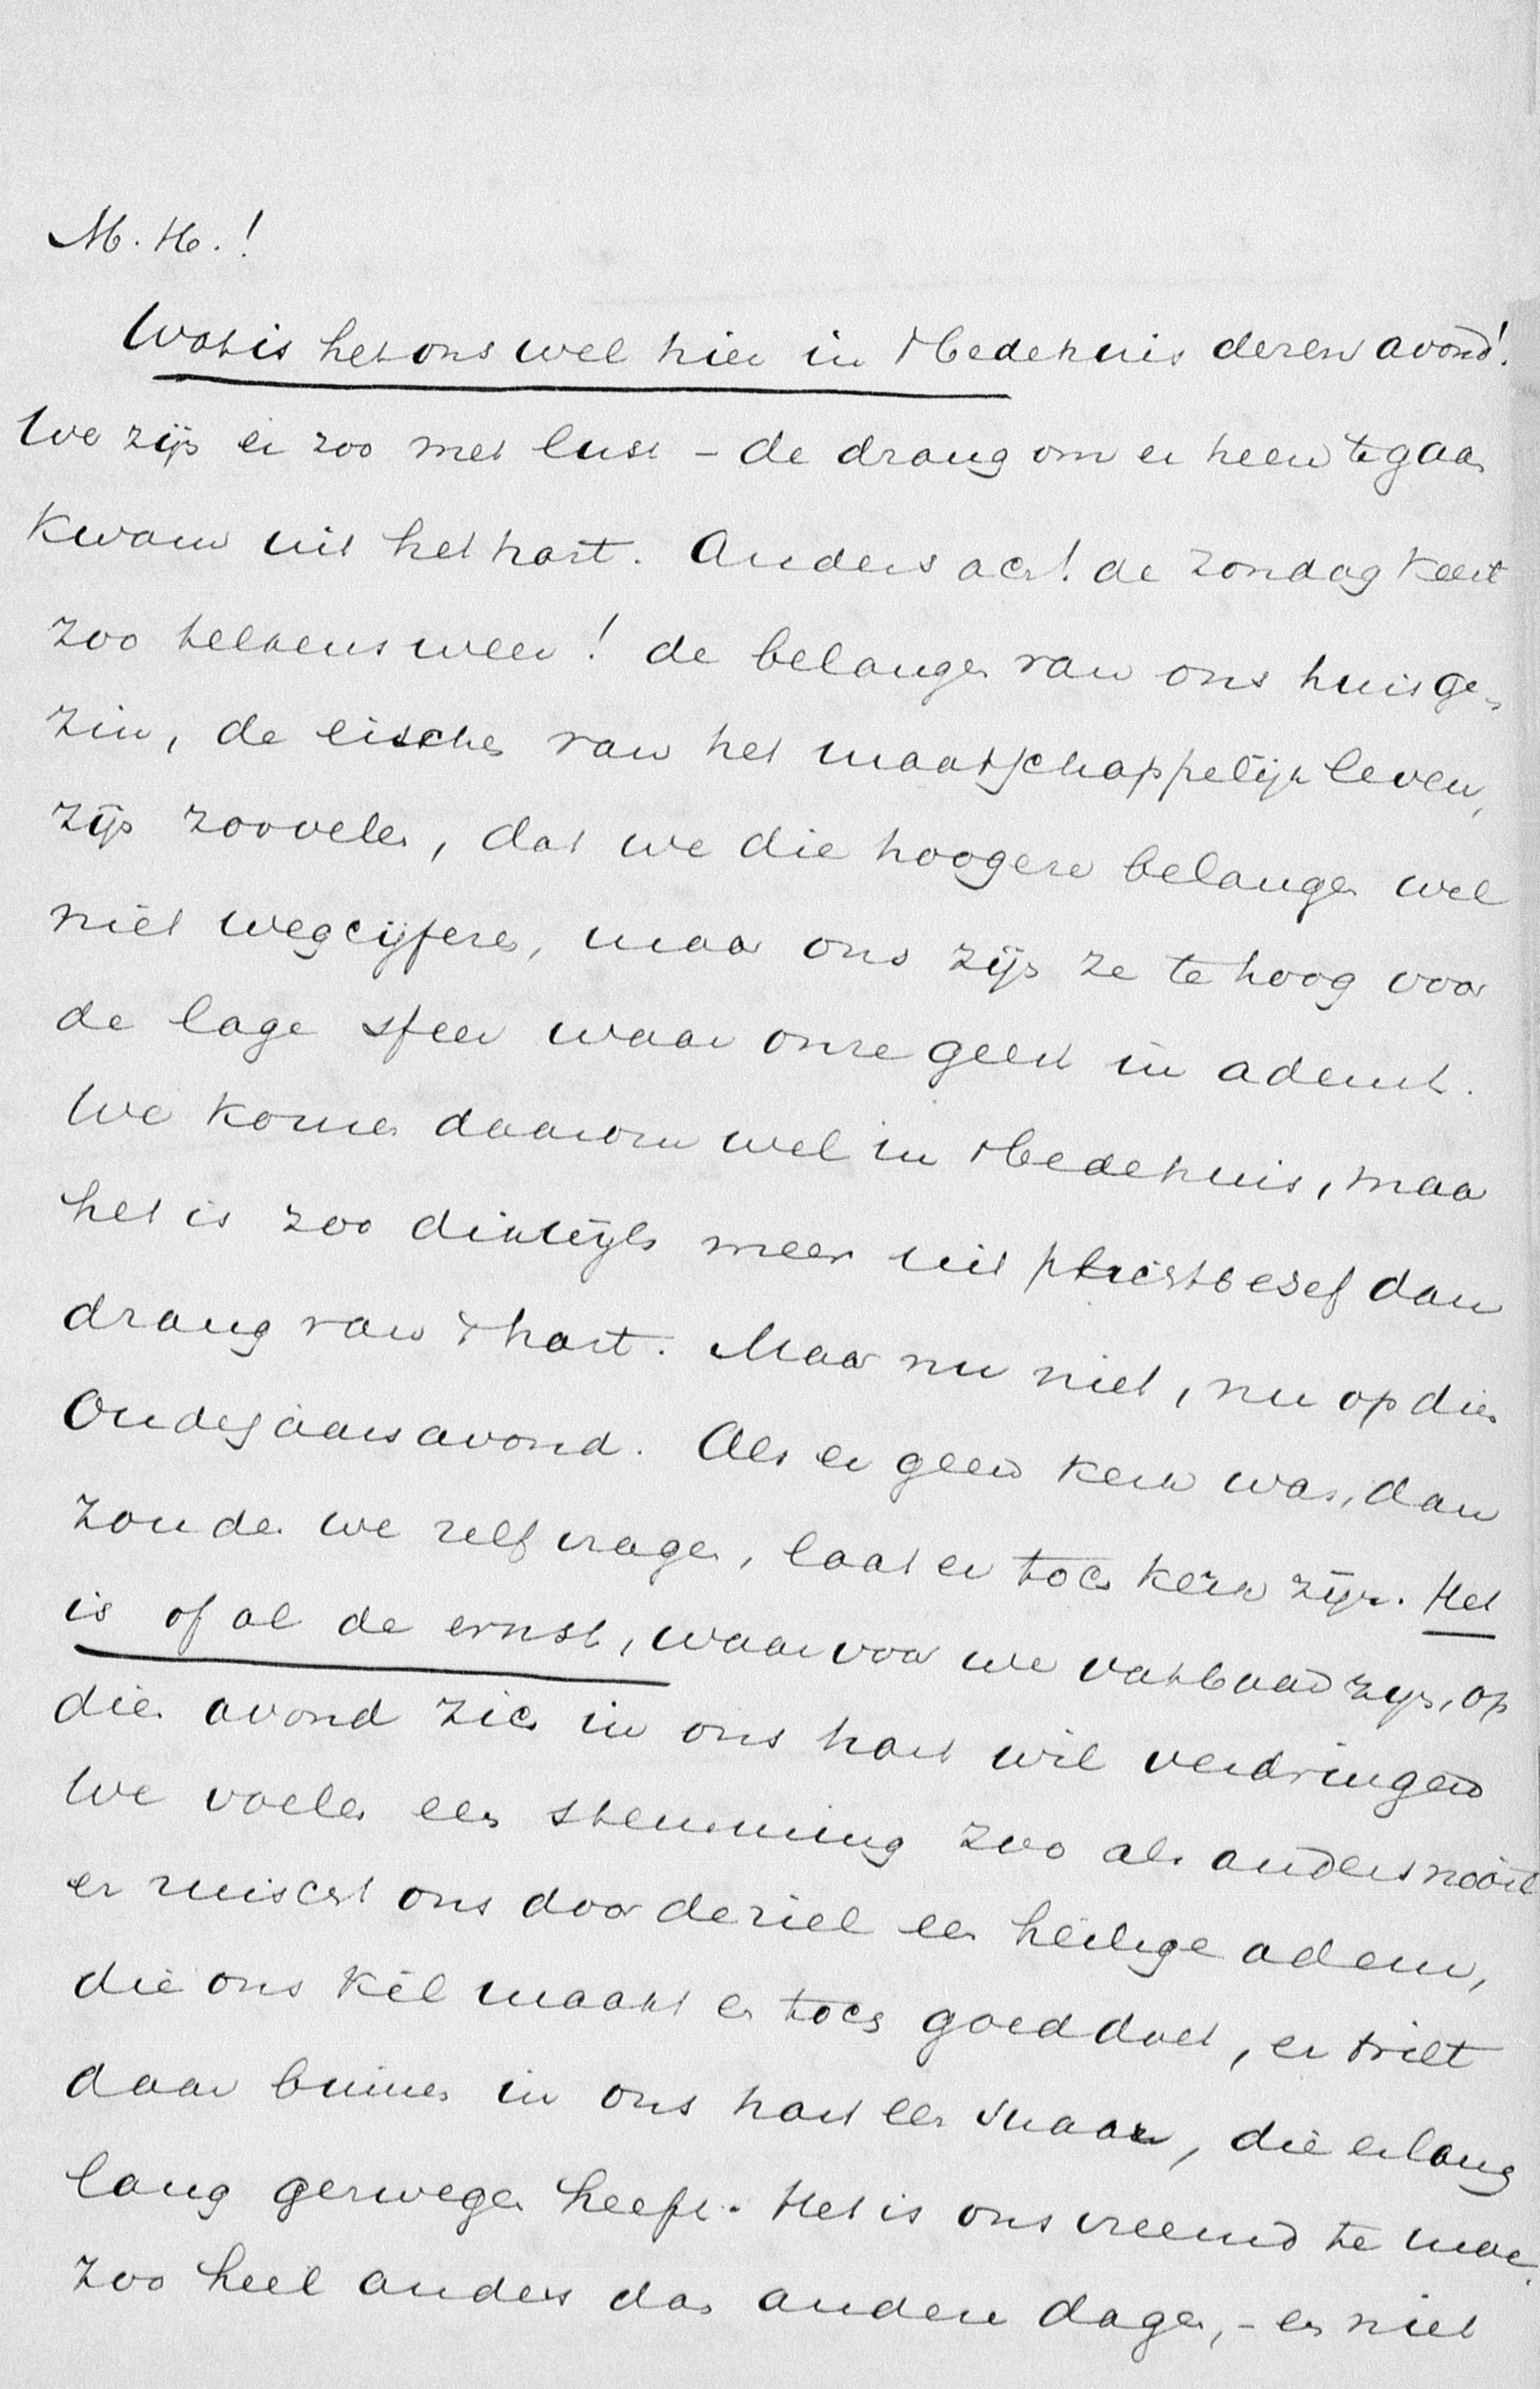 M. H.!
Wat is het ons wel hier in 't Bedehuis dezen avond!
We zijn er zoo met lust – de drang om er heen te gaan
kwam uit het hart. Anders ach! de Zondag keert
zoo telkens weer! de belangen van ons huisge-
zin, de eischen van het maatschappelijk leven,
zijn zoovelen, dat we die hoogere belangen wel
niet wegcijferen, maar ons zijn ze te hoog voor
de lage sfeer waar onze geest in ademt.
We komen daarom wel in 't Bedehuis, maar
het is zoo dikwijls meer uit plichtbesef dan
drang van 't hart. Maar nu niet, nu op dien
Oudejaarsavond. Als er geen kerk was, dan
zouden we zelf vragen, laat er toch kerk zijn. Het
is of al de ernst, waarvoor we vatbaar zijn, op
dien avond zich in ons hart wil verdringen
We voelen een stemming zoo als anders nooit
er ruischt ons door de ziel een heilige adem,
die ons kil maakt en toch goed doet, er trilt
daar binnen in ons hart een snaar, die er lang
lang gezwegen heeft. Het is ons vreemd te moe.
zoo heel anders dan andere dagen, – en niet